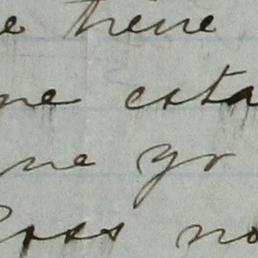 e tiene
ne esta
ne yo
Ross no